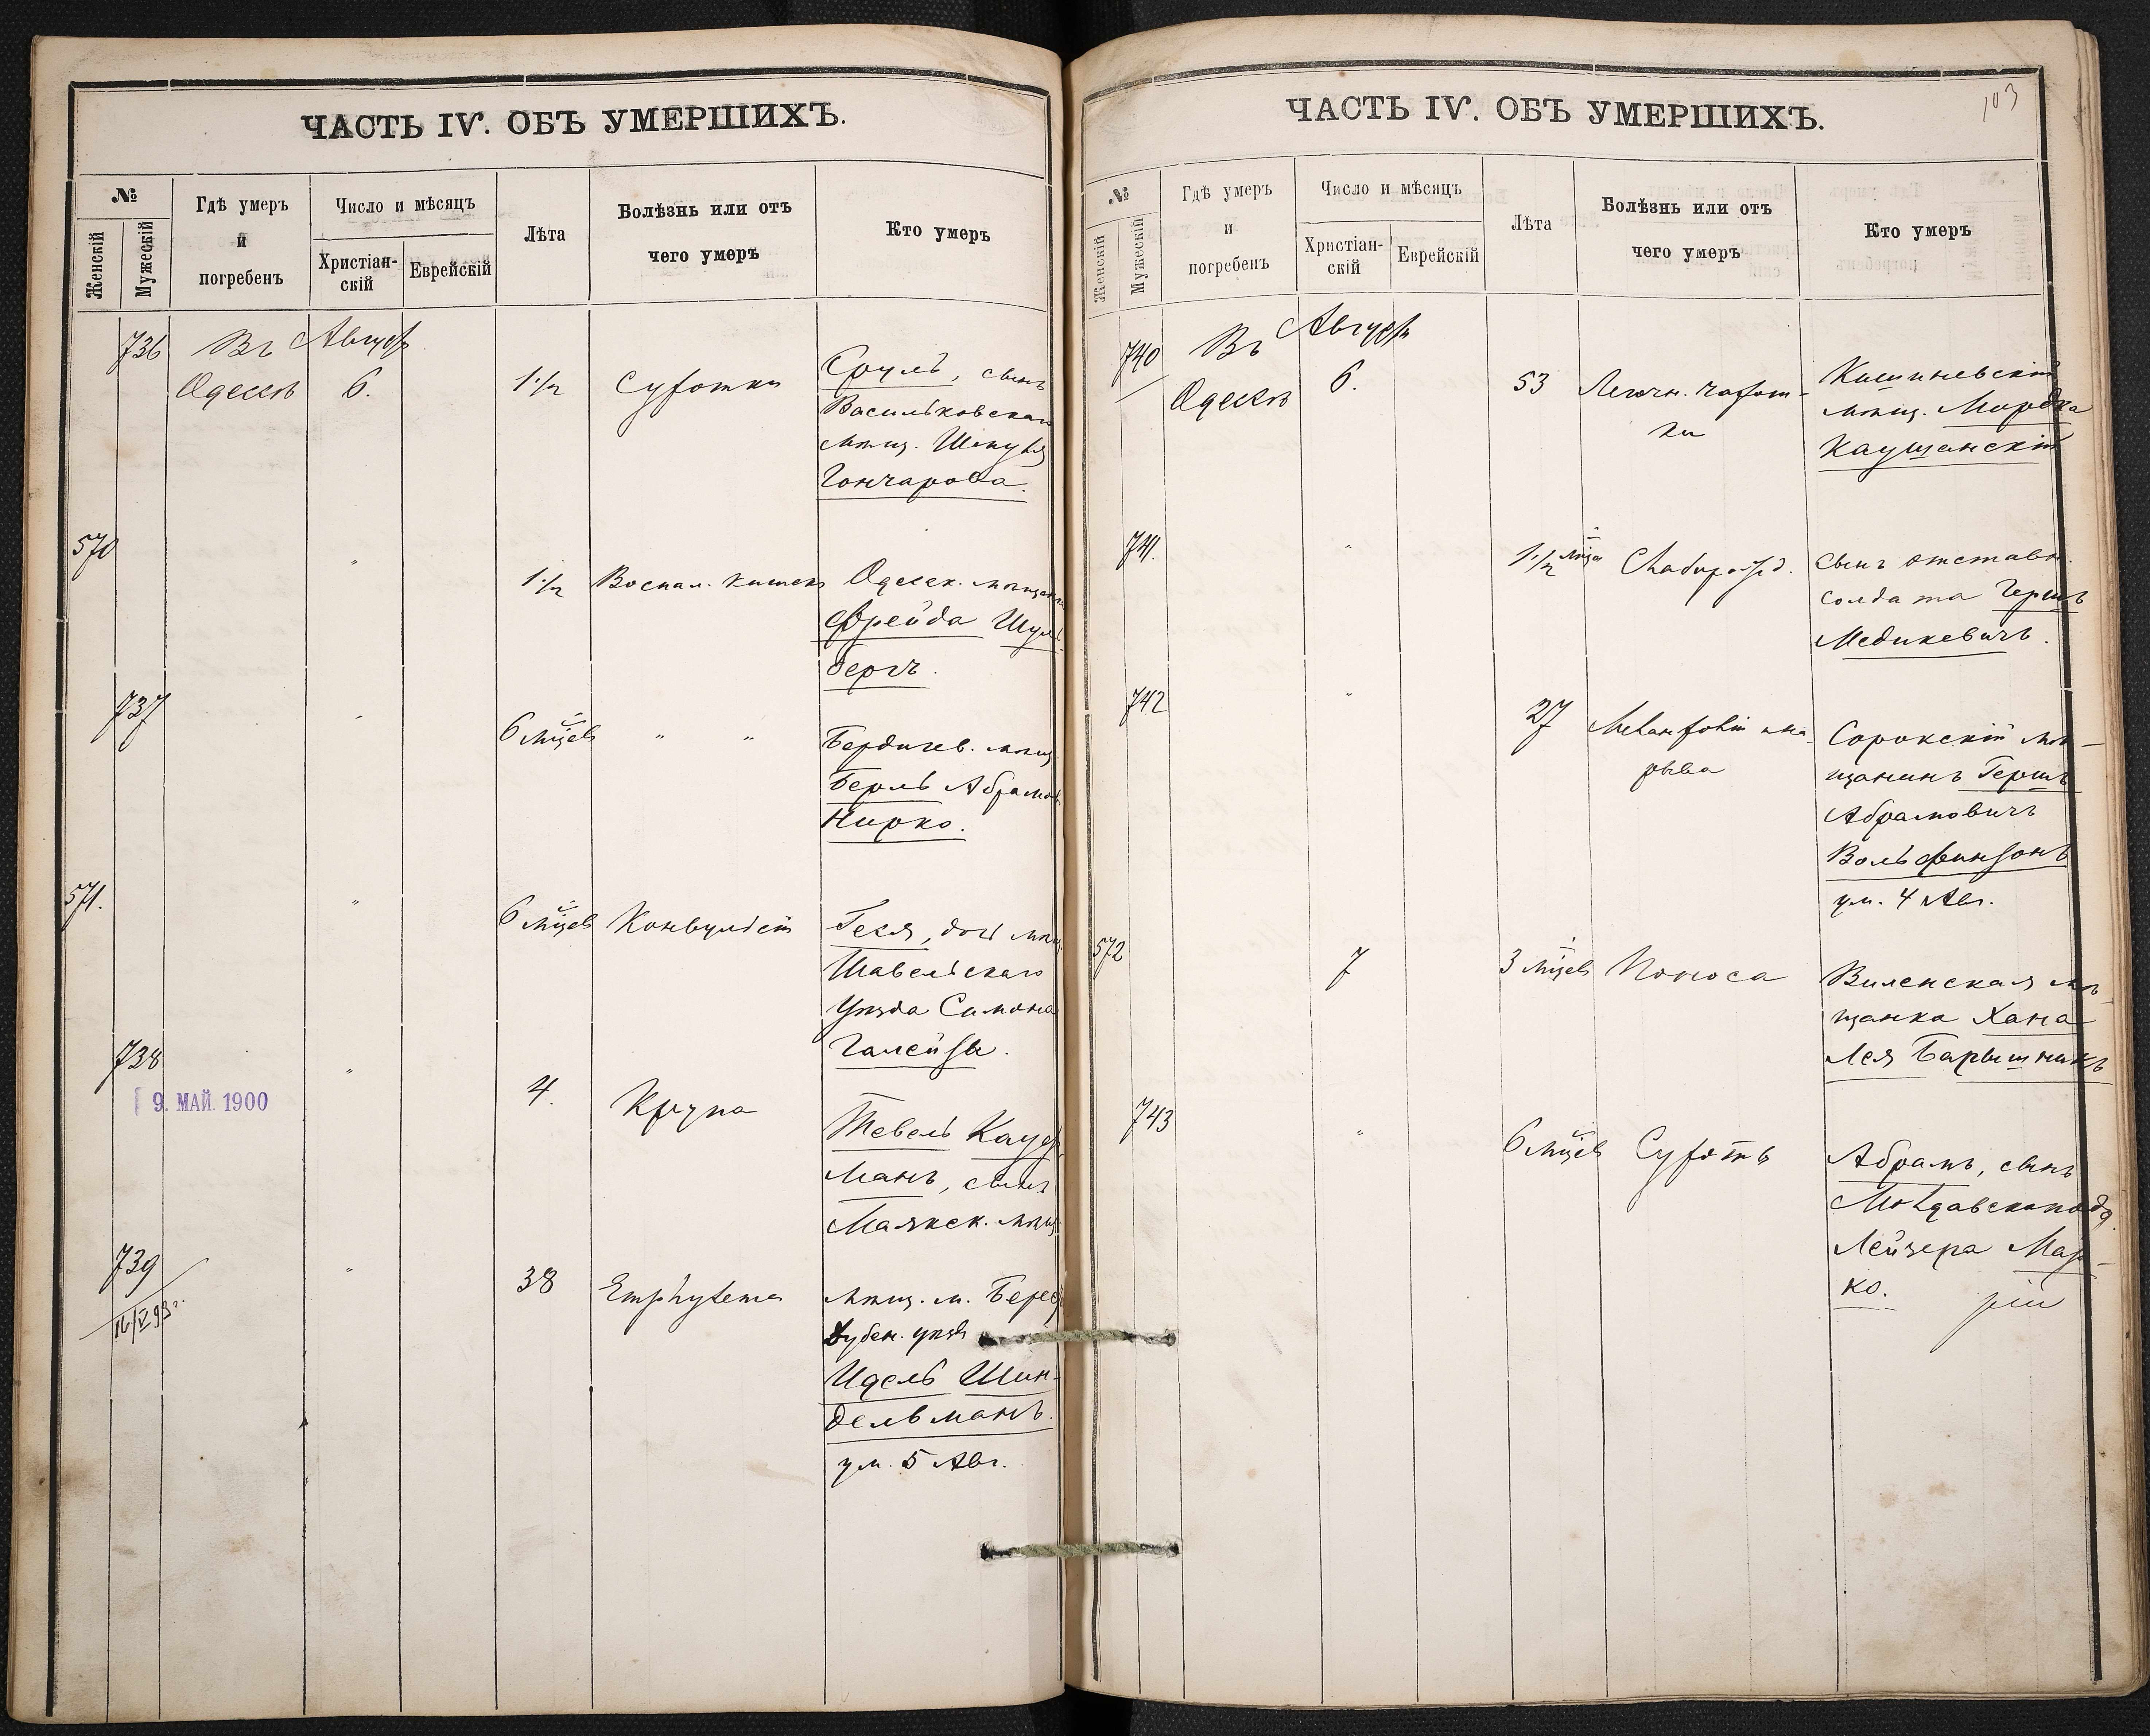 ЧАСТЬ IV. ОБЪ УМЕРШИХЪ.
№
Женскій
Мужескій
Гдѣ умеръ
и
погребенъ
Число и мѣсяцъ
Христіан-
скій
Еврейскій
Лѣта
Болѣзнь или отъ
чего умеръ
Кто умеръ
736 Въ
Одессѣ 6. 1 1/2
Сруль, сынъ
Васильковскаго
мѣщ.
Гончарова.
570 " 1 1/2 Воспал. кишекъ Одесск.
Фрейда Шуль
бергъ.
737 " 6 мѣсяцевъ " " Бердичев. мѣщ.
Берль Абрамов
Нирко.
571. " 6 мѣсяцевъ Конвульсій Геся, дочь мѣщ.
Шавельскаго
уѣзда Симона
738 " 4. Крупа
9. МАЙ. 1900
Тевель Кауф
манъ, сынъ
Маякск. мѣщ.
739 " 38 Emphysema мѣщ. м.
16/V 93 г. Дубен. уѣзд.
Идель Шин-
дельманъ.
ум. 5 Авг.
103
ЧАСТЬ IV. ОБЪ УМЕРШИХЪ.
№
Женскій
Мужескій
Гдѣ умеръ
и
погребенъ
Число и мѣсяцъ
Христіан-
скій
Еврейскій
Лѣта
Болѣзнь или отъ
чего умеръ
Кто умеръ
740 Въ
Одессѣ 6. 53 Легочн. чахот-
ки
Кишиневскій
мѣщ. Мордка
Каушанскій
741. " 1 1/2 сынъ отставн.
солдата Гершъ
Медикевичъ.
742 " 27 Сорокскій мѣ-
щанинъ Гершъ
Абрамовичъ
Вольфинзонъ
ум. 4 Авг.
572 7 3 мѣсяцевъ Поноса Виленская мѣ-
щанка Хана
Лея Барышникъ
743 " 6 мѣсяцевъ Абрамъ, сынъ
Лейзера
ко.